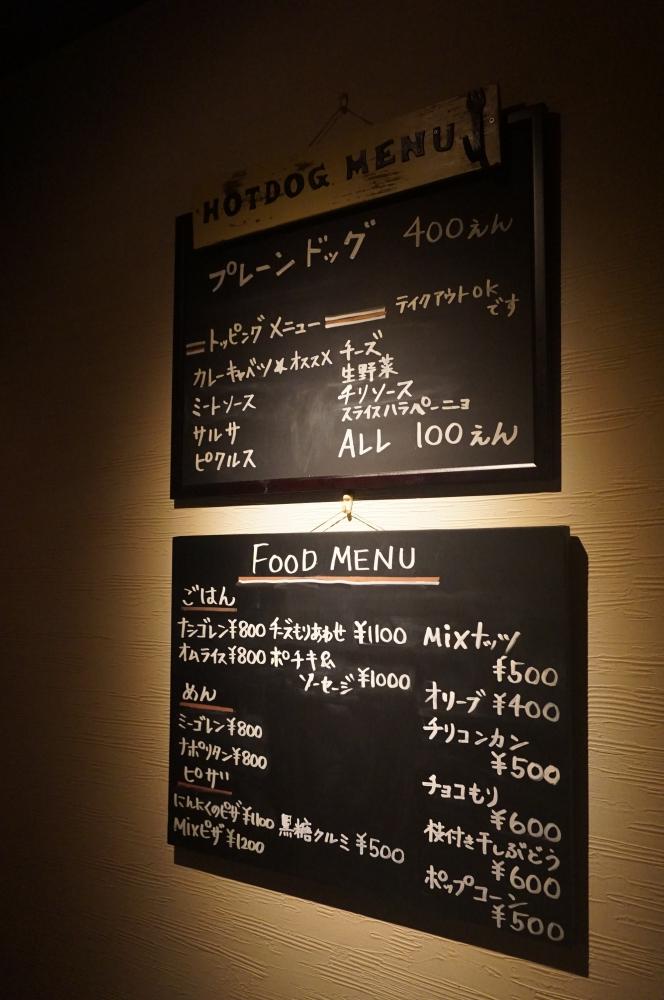 HOTDOG MENU
プレーンドッグ 400えん
テイクアウトOK
です
トッピングメニュー
カレーキャベツ★オススメ
ミートソース
サルサ
ピクルス
チーズ
生野菜
チリソース
スライスハラペーニョ
ALL 100えん
FOOD MENU
ごはん
ナシゴレン¥800
オムライス¥800
めん
ミーゴレン¥800
ナポリタン¥800
ピザ
にんにくのピザ¥1100
Mixピザ¥1200
チーズもりあわせ ¥1100
ポチキ&
ソーセージ¥1000
黒糖クルミ ¥500
Mixナッツ
¥500
オリーブ ¥400
チリコンカン
¥500
チョコもり
¥600
枝付き干しぶどう
¥600
ポップコーン
¥500